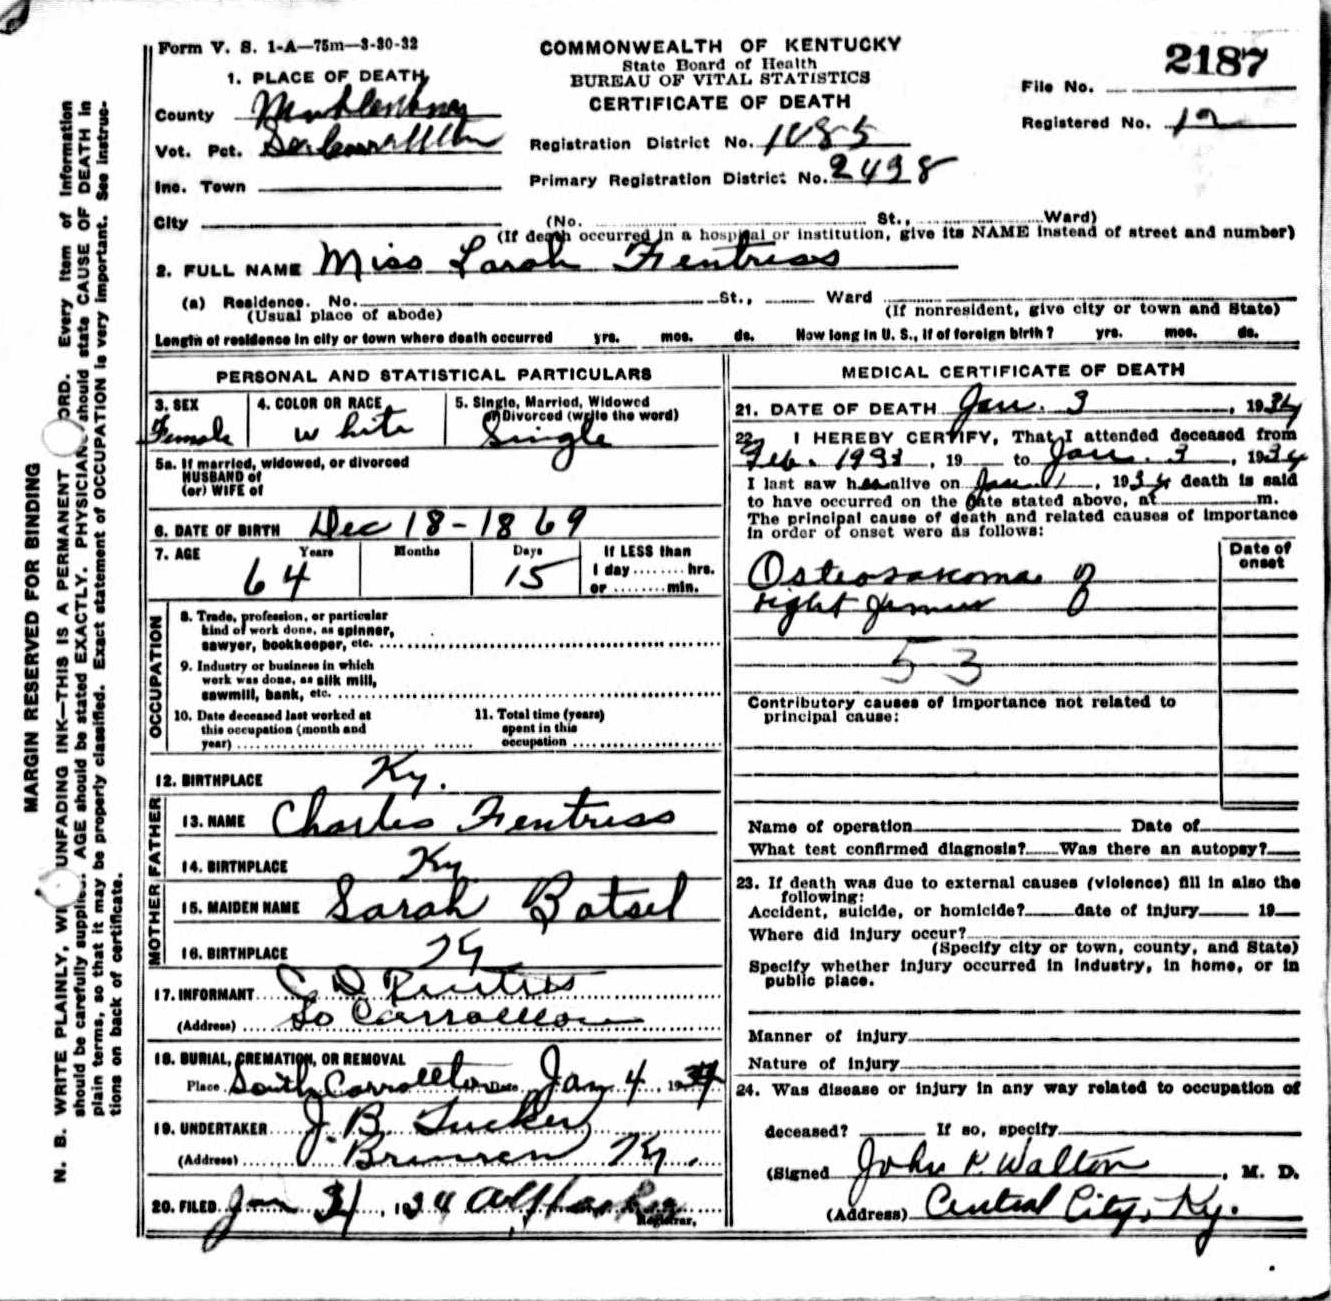 Form V. S. 1-A—75m—3-30-32
COMMONWEALTH OF KENTUCKY
State Board of Health
BUREAU OF VITAL STATISTICS
CERTIFICATE OF DEATH
2187
File No.
Registered No. 12
1. PLACE OF DEATH
County Muhlenberg
Vot. Pct. So Carrollton
Inc. Town
City
Registration District No. 1085
Primary Registration District No. 2498
(No. St., Ward)
(If death occurred in a hospital or institution, give its NAME instead of street and number)
2. FULL NAME Miss Sarah Fentress
(a) Residence. No. St., Ward
(Usual place of abode) (If nonresident, give city or town and State)
Length of residence in city or town where death occurred yrs. mos. ds. How long in U. S., if of foreign birth? yrs. mos. ds.
PERSONAL AND STATISTICAL PARTICULARS
3. SEX Female
4. COLOR OR RACE white
5. Single, Married, Widowed
or Divorced (write the word)
Single
5a. If married, widowed, or divorced
HUSBAND of
(or) WIFE of
6. DATE OF BIRTH Dec 18-1869
7. AGE Years Months Days If LESS than
64 15 1 day ........ hrs.
or ........ min.
OCCUPATION
8. Trade, profession, or particular
kind of work done, as spinner,
sawyer, bookkeeper, etc.
9. Industry or business in which
work was done, as silk mill,
sawmill, bank, etc.
10. Date deceased last worked at
this occupation (month and
year)
11. Total time (years)
spent in this
occupation
12. BIRTHPLACE Ky.
FATHER
13. NAME Charles Fentress
14. BIRTHPLACE Ky
MOTHER
15. MAIDEN NAME Sarah Batsel
16. BIRTHPLACE Ky
17. INFORMANT C D Fentress
(Address) So Carrollton
18. BURIAL, CREMATION, OR REMOVAL
Place South Carrollton Date Jan 4 1934
19. UNDERTAKER J. B. Tucker
(Address) Bremen Ky.
20. FILED Jan , 1934
Registrar.
MEDICAL CERTIFICATE OF DEATH
21. DATE OF DEATH Jan. 3 , 1934
22. I HEREBY CERTIFY, That I attended deceased from
Feb. 1933 , 19 to Jan. 3 , 1934
I last saw her alive on Jan 1 , 1934 death is said
to have occurred on the date stated above, at m.
The principal cause of death and related causes of importance
in order of onset were as follows:
Date of
onset
Osteosarcoma of
right femur
53
Contributory causes of importance not related to
principal cause:
Name of operation Date of
What test confirmed diagnosis? Was there an autopsy?
23. If death was due to external causes (violence) fill in also the
following:
Accident, suicide, or homicide? date of injury 19
Where did injury occur?
(Specify city or town, county, and State)
Specify whether injury occurred in industry, in home, or in
public place.
Manner of injury
Nature of injury
24. Was disease or injury in any way related to occupation of
deceased? If so, specify
(Signed John P. Walton , M. D.
(Address) Central City, Ky.
MARGIN RESERVED FOR BINDING
N. B. WRITE PLAINLY, UNFADING INK—THIS IS A PERMANENT Every item of information
should be carefully supplied. AGE should be stated EXACTLY. PHYSICIANS should state CAUSE OF DEATH in
plain terms, so that it may be properly classified. Exact statement of OCCUPATION is very important. See instruc-
tions on back of certificate.